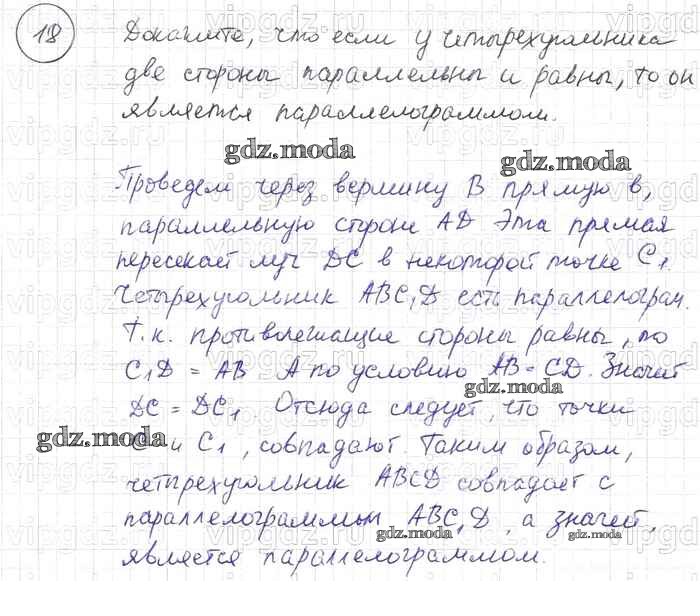 18 Докажите, что если у четырехугольника
две стороны параллельны и равны, то он
является параллелограммом.
gdz.moda
gdz.moda
Проведем через вершину B прямую в,
параллельную стороне AD Эта прямая
пересекает луч DC в некоторой точке C1.
Четырехугольник ABC1D есть параллелограм.
Т.к. противолежащие стороны равны, то
C1D = AB А по условию AB = CD. Значит
gdz.moda
DC = DC1. Отсюда следует, что точки
gdz.moda
C и C1, совпадают. Таким образом,
четырехугольник ABCD совпадает с
параллелограммом ABC1D, а значит,
gdz.moda
gdz.moda
является параллелограммом.